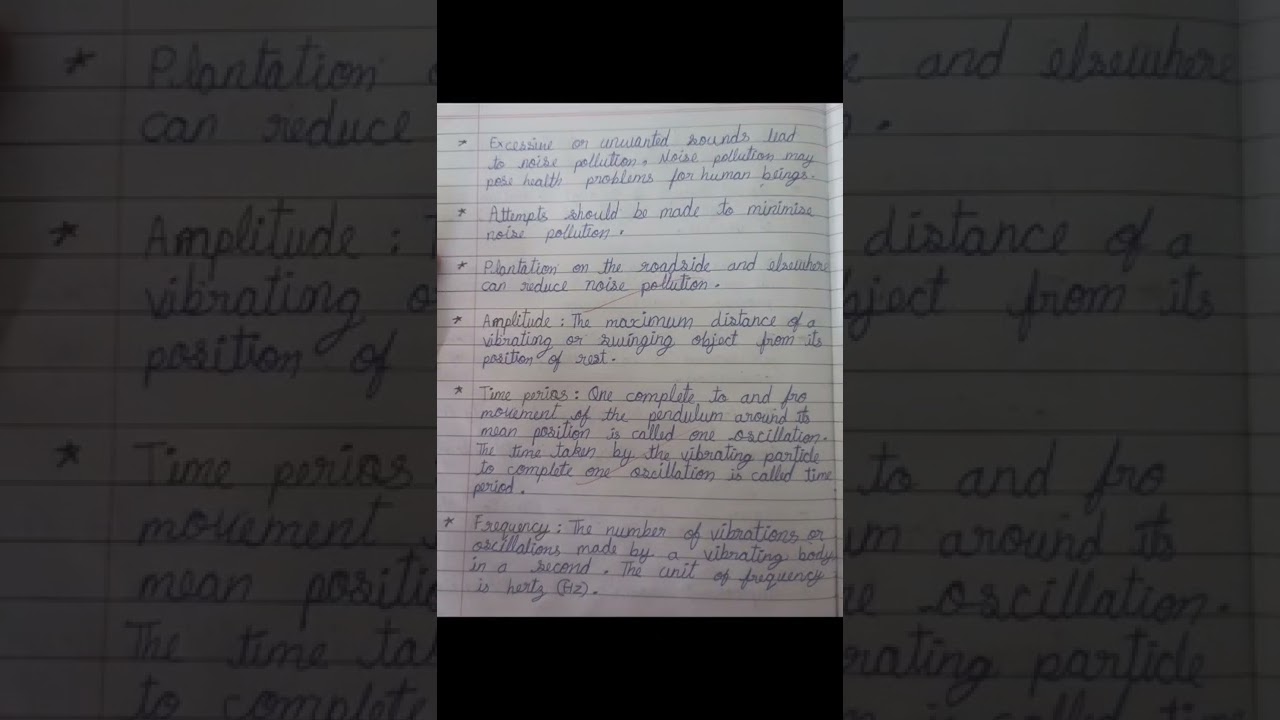 * Excessive or unwanted sounds lead
to noise pollution. Noise pollution may
pose health problems for human beings.
* Attempts should be made to minimise
noise pollution.
* Plantation on the roadside and elsewhere
can reduce noise pollution.
* Amplitude : The maximum distance of a
vibrating or swinging object from its
position of rest.
* Time perios : One complete to and fro
movement of the pendulum around its
mean position is called one oscillation.
The time taken by the vibrating particle
to complete one oscillation is called time
period.
* Frequency : The number of vibrations or
oscillations made by a vibrating body
in a second. The unit of frequency
is hertz (Hz).